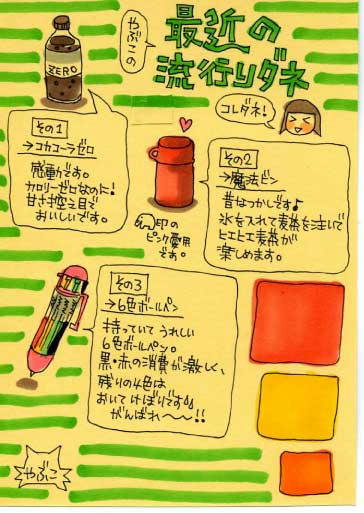 やぶこの
最近の
流行りダネ
コレダネ!
ZERO
その1
→コカコーラゼロ
感動です。
カロリーゼロなのに!
甘さ控え目で
おいしいです。
その2
→魔法ビン
昔なつかしです♪
氷を入れて麦茶を注いで
ヒエヒエ麦茶が
楽しめます。
印の
ピンク愛用
です。
その3
→6色ボールペン
持っていてうれしい
6色ボールペン。
黒・赤の消費が激しく、
残りの4色は
おいてけぼりです
がんばれ〜〜!!
やぶこ